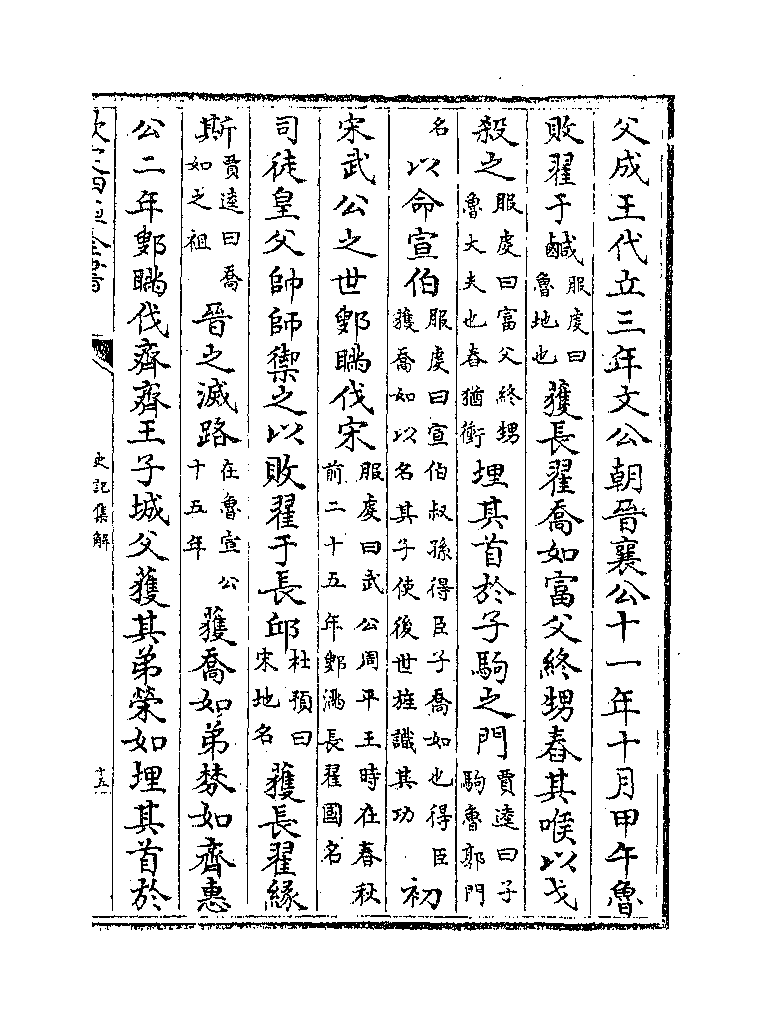 父成王代立三年文公朝晉襄公十一年十月甲午魯
敗翟于鹹服虔曰魯地也獲長翟喬如富父終甥舂其喉以戈
殺之服虔曰富父終甥魯大夫也舂猶衝埋其首於子駒之門賈逵曰子駒魯郭門
名以命宣伯服虔曰宣伯叔孫得臣子喬如也得臣獲喬如以名其子使後世旌識其功初
宋武公之世鄋瞞伐宋服虔曰武公周平王時在春秋前二十五年鄋瞞長翟國名
司徒皇父帥師禦之以敗翟于長邱杜預曰宋地名獲長翟緣
斯賈逵曰喬如之祖晉之滅路在魯宣公十五年獲喬如弟棼如齊惠
公二年鄋瞞伐齊齊王子城父獲其弟榮如埋其首於
欽定四庫全書
史記集解
十五